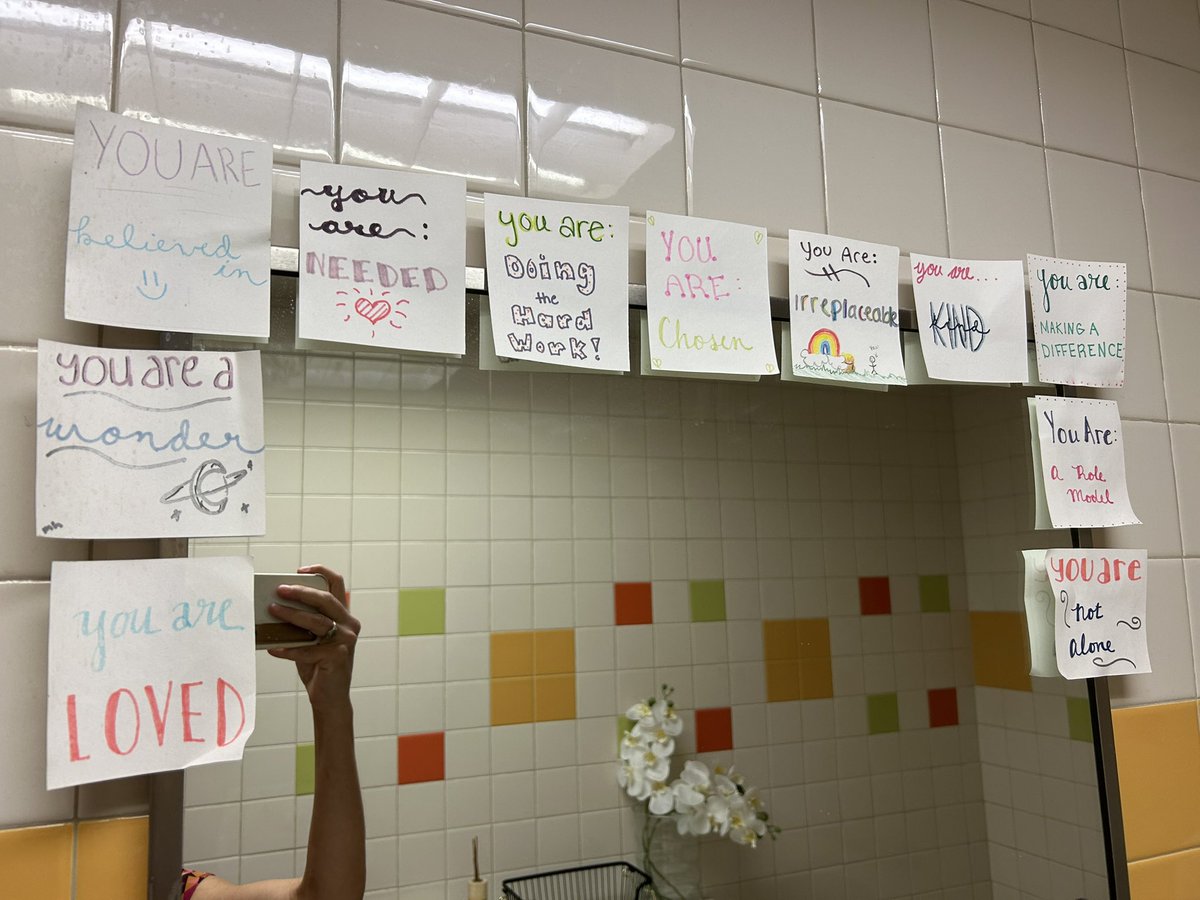 YOU ARE
believed
in
you
are:
NEEDED
you are:
Doing
the
Hard
Work!
YOU
ARE:
Chosen
You Are:
Irreplaceable
you are...
KIND
you are:
MAKING A
DIFFERENCE
You are a
wonder
You Are:
A Role
Model
you are
LOVED
YOU are
not
alone